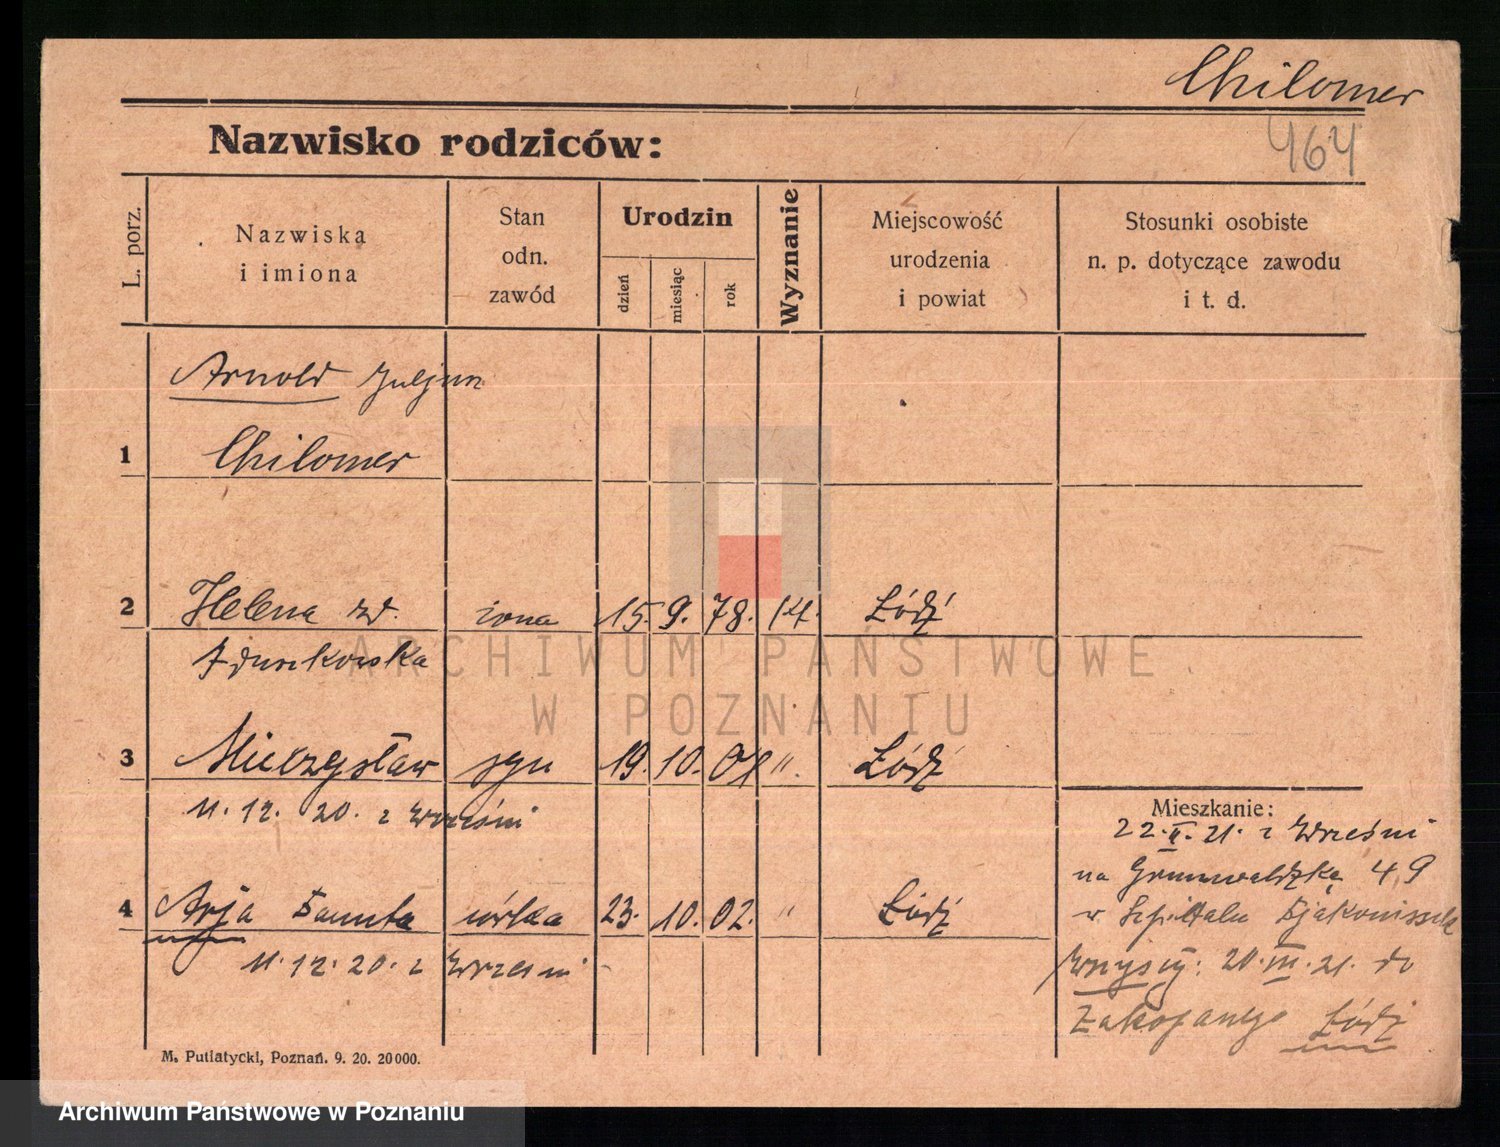 Chilomer
464
Nazwisko rodziców:
L. porz.
Nazwiska
i imiona
Stan
odn.
zawód
Urodzin
dzień
miesiąc
rok
Wyznanie
Miejscowość
urodzenia
i powiat
Stosunki osobiste
n. p. dotyczące zawodu
i t. d.
Arnold Juljan
1 Chilomer
2 Helena zd. żona 15. 9. 78. Łódź
3 Mieczysław syn 19. 10. 01 ". Łódź
11. 12. 20. z Wrześni
4 Arja Danuta córka 23. 10. 02. " Łódź
11. 12. 20. z Wrześni
Mieszkanie:
22. II. 21. z Wrześni
na Grunwaldzką 49
w Szpitalu
20. III. 21. do
Zakopanego Łódź
M. Putiatycki, Poznań. 9. 20. 20000.
ARCHIWUM PAŃSTWOWE
W POZNANIU
Archiwum Państwowe w Poznaniu